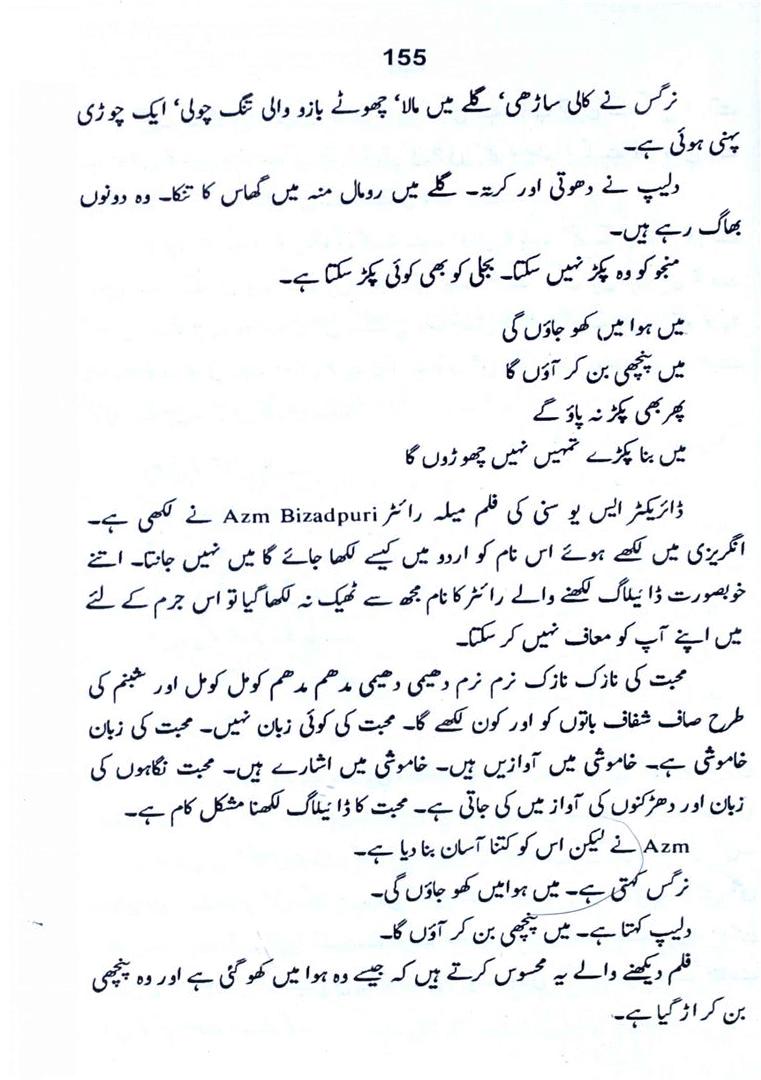 155
نرگس نے کالی ساڑھی، گلے میں مالا، چھوٹے بازو والی تنگ چولی، ایک چوڑی
پہنی ہوئی ہے۔
دلیپ نے دھوتی اور کرتہ۔ گلے میں رومال منہ میں گھاس کا تنکا۔ وہ دونوں
بھاگ رہے ہیں۔
منجو کو وہ پکڑ نہیں سکتا۔ بجلی کو بھی کوئی پکڑ سکتا ہے۔
میں ہوا میں کھو جاؤں گی
میں پنچھی بن کر آؤں گا
پھر بھی پکڑ نہ پاؤ گے
میں بنا پکڑے تمہیں نہیں چھوڑوں گا
ڈائریکٹر ایس یو سنی کی فلم میلہ رائٹر Azm Bizadpuri نے لکھی ہے۔
انگریزی میں لکھے ہوئے اس نام کو اردو میں کیسے لکھا جائے گا میں نہیں جانتا۔ اتنے
خوبصورت ڈائیلاگ لکھنے والے رائٹر کا نام مجھ سے ٹھیک نہ لکھا گیا تو اس جرم کے لئے
میں اپنے آپ کو معاف نہیں کر سکتا۔
محبت کی نازک نازک نرم نرم دھیمی دھیمی مدھم مدھم کومل کومل اور شبنم کی
طرح صاف شفاف باتوں کو اور کون لکھے گا۔ محبت کی کوئی زبان نہیں۔ محبت کی زبان
خاموشی ہے۔ خاموشی میں آوازیں ہیں۔ خاموشی میں اشارے ہیں۔ محبت نگاہوں کی
زبان اور دھڑکنوں کی آواز میں کی جاتی ہے۔ محبت کا ڈائیلاگ لکھنا مشکل کام ہے۔
Azm نے لیکن اس کو کتنا آسان بنا دیا ہے۔
نرگس کہتی ہے۔ میں ہوا میں کھو جاؤں گی۔
دلیپ کہتا ہے۔ میں پنچھی بن کر آؤں گا۔
فلم دیکھنے والے یہ محسوس کرتے ہیں کہ جیسے وہ ہوا میں کھو گئی ہے اور وہ پنچھی
بن کر اڑ گیا ہے۔